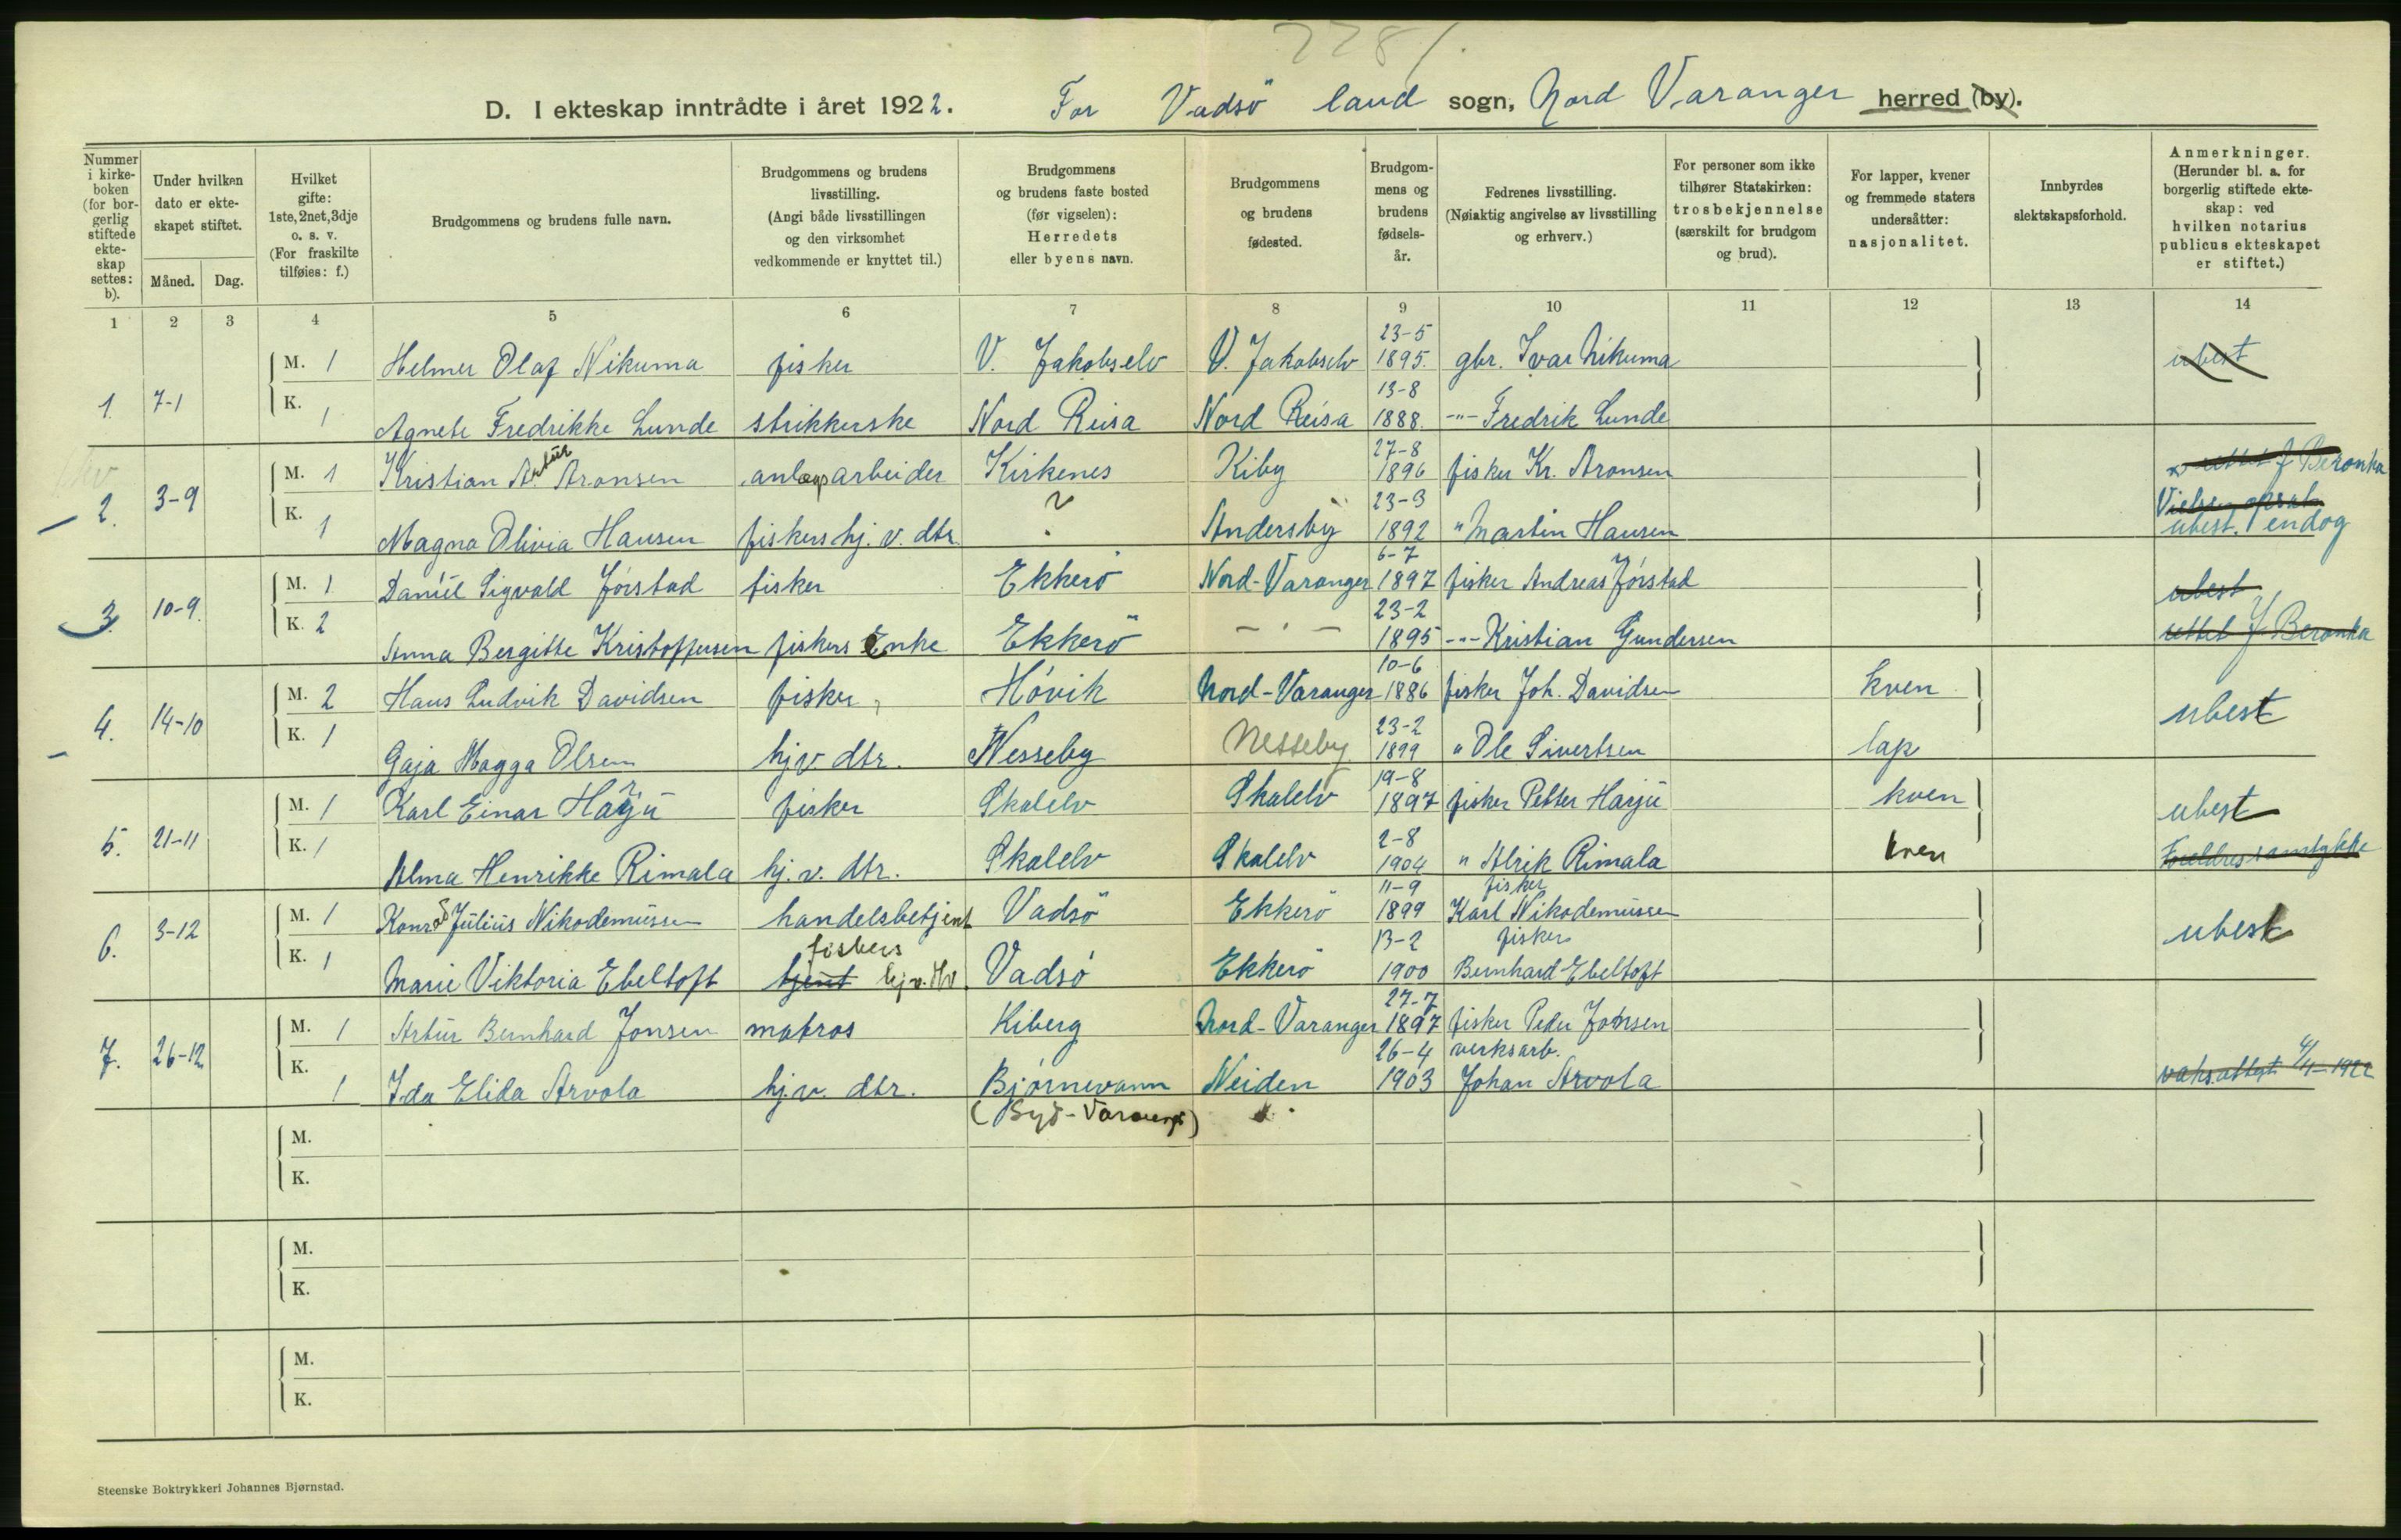 228/.
D. I ekteskap inntrådte i året 1922. For Vadsö land sogn, Nord Varanger herred (by).
Nummer i kirkeboken (for borgerlig stiftede ekteskap settes: b).
Under hvilken dato er ekteskapet stiftet.
Måned. Dag.
Hvilket gifte: 1ste, 2net, 3dje o. s. v. (For fraskilte tilføies: f.)
Brudgommens og brudens fulle navn.
Brudgommens og brudens livsstilling. (Angi både livsstillingen og den virksomhet vedkommende er knyttet til.)
Brudgommens og brudens faste bosted (før vigselen): Herredets eller byens navn.
Brudgommens og brudens fødested.
Brudgommens og brudens fødselsår.
Fedrenes livsstilling. (Nøiaktig angivelse av livsstilling og erhverv.)
For personer som ikke tilhører Statskirken: trosbekjennelse (særskilt for brudgom og brud).
For lapper, kvener og fremmede staters undersåtter: nasjonalitet.
Innbyrdes slektskapsforhold.
Anmerkninger. (Herunder bl. a. for borgerlig stiftede ekteskap: ved hvilken notarius publicus ekteskapet er stiftet.)
1 2 3 4 5 6 7 8 9 10 11 12 13 14
M. 1 Helmer Olaf Nikuma fisker V. Jakobselv V. Jakobselv 23-5 1895. gbr. Ivar Nikuma ubest
1. 7-1 K. 1 Agnete Fredrikke Lunde strikkerske Nord Reisa Nord Reisa 13-8 1888. -"- Fredrik Lunde
M. 1 Kristian Artur Aronsen anlægsarbeider Kirkenes Kiby 27-8 1896 fisker Kr. Aronsen rettet J Beronka
2. 3-9 K. 1 Magna Olivia Hansen fiskers hj. v. dtr. ? Andersby 23-3 1892 " Martin Hansen ubest. endog
M. 1 Daniel Sigvald Jörstad fisker Ekkerö Nord-Varanger 6-7 1897 fisker Andreas Jörstad ubest
3. 10-9. K. 2 Anna Bergitte Kristoffersen fiskers Enke Ekkerö -"- 23-2 1895 -"- Kristian Gundersen rettet J. Beronka
M. 2 Hans Ludvik Davidsen fisker Hövik Nord-Varanger 10-6 1886 fisker Joh. Davidsen kven ubest
4. 14-10 K. 1 Gaja Magga Olsen hjv dtr. Nesseby Nesseby 23-2 1899 " Ole Sivertsen lap
M. 1 Karl Einar Harju fisker Skalelv Skalelv 19-8 1897 fisker Petter Harju kven ubest
5. 21-11 K. 1 Alma Henrikke Rimala hj. v. dtr. Skalelv Skalelv 2-8 1904 " Alrik Rimala kven Foreldres samtykke
M. 1 Konrad Julius Nikodemussen handelsbetjent Vadsö Ekkerö 11-9 1899 fisker Karl Nikodemussen ubest
6. 3-12 K. 1 Marie Viktoria Ebeltoft tjent fiskers hj v. dtr. Vadsö Ekkerö 13-2 1900 fisker Bernhard Ebeltoft
M. 1 Artur Bernhard Jonsen matros Kiberg Nord-Varanger 27-7 1897 fisker Peder Johnsen
7. 26-12 K. 1 Ida Elida Arvola hj.v. dtr. Björnevann (Syd-Varanger) Neiden 26-4 1903 verksarb. Johan Arvola 1922
M.
K.
M.
K.
M.
K.
Steenske Boktrykkeri Johannes Bjørnstad.